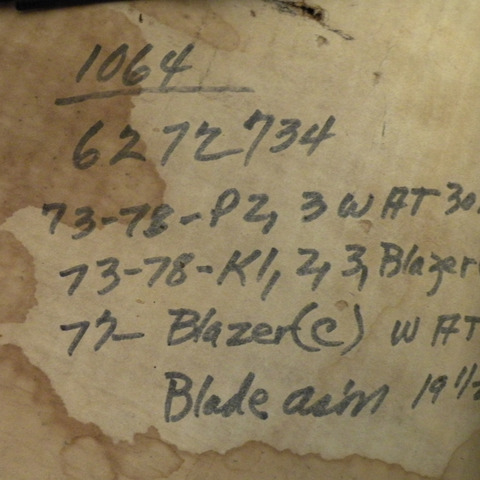 1064
6272734
73-78-P2, 3 W AT 30
73-78-K1, 2, 3, Blazer
73- Blazer(C) W AT
Blade asm 19 1/2